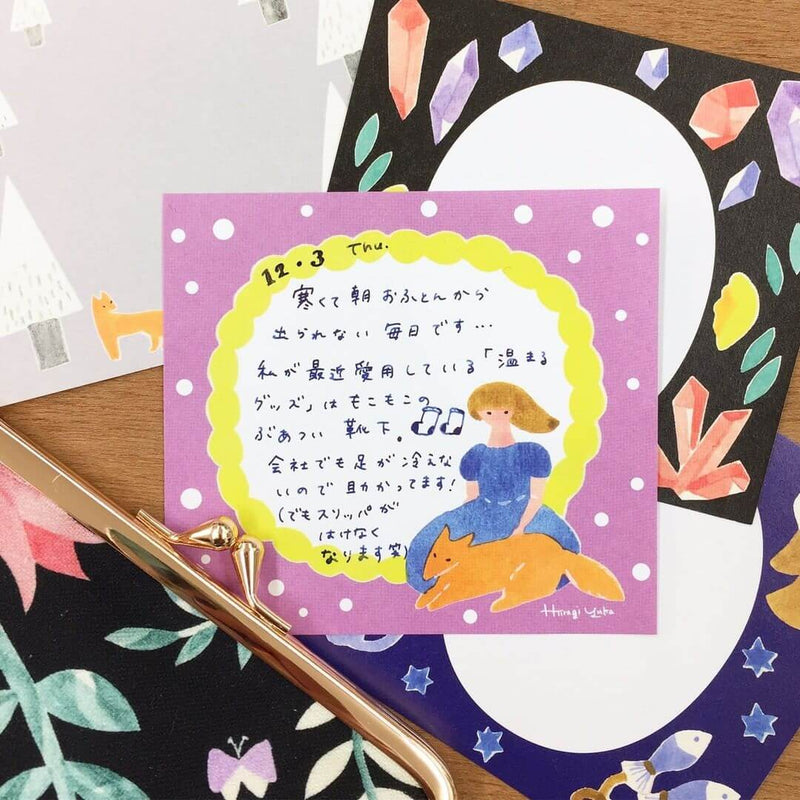 12・3 Thu.
寒くて朝おふとんから
出られない毎日です…
私が最近愛用している「温まる
グッズ」はもこもこの
ぶあつい靴下。
会社でも足が冷えな
いので助かってます!
(でもスリッパが
はけなく
なります笑)
Hiiragi Yuka